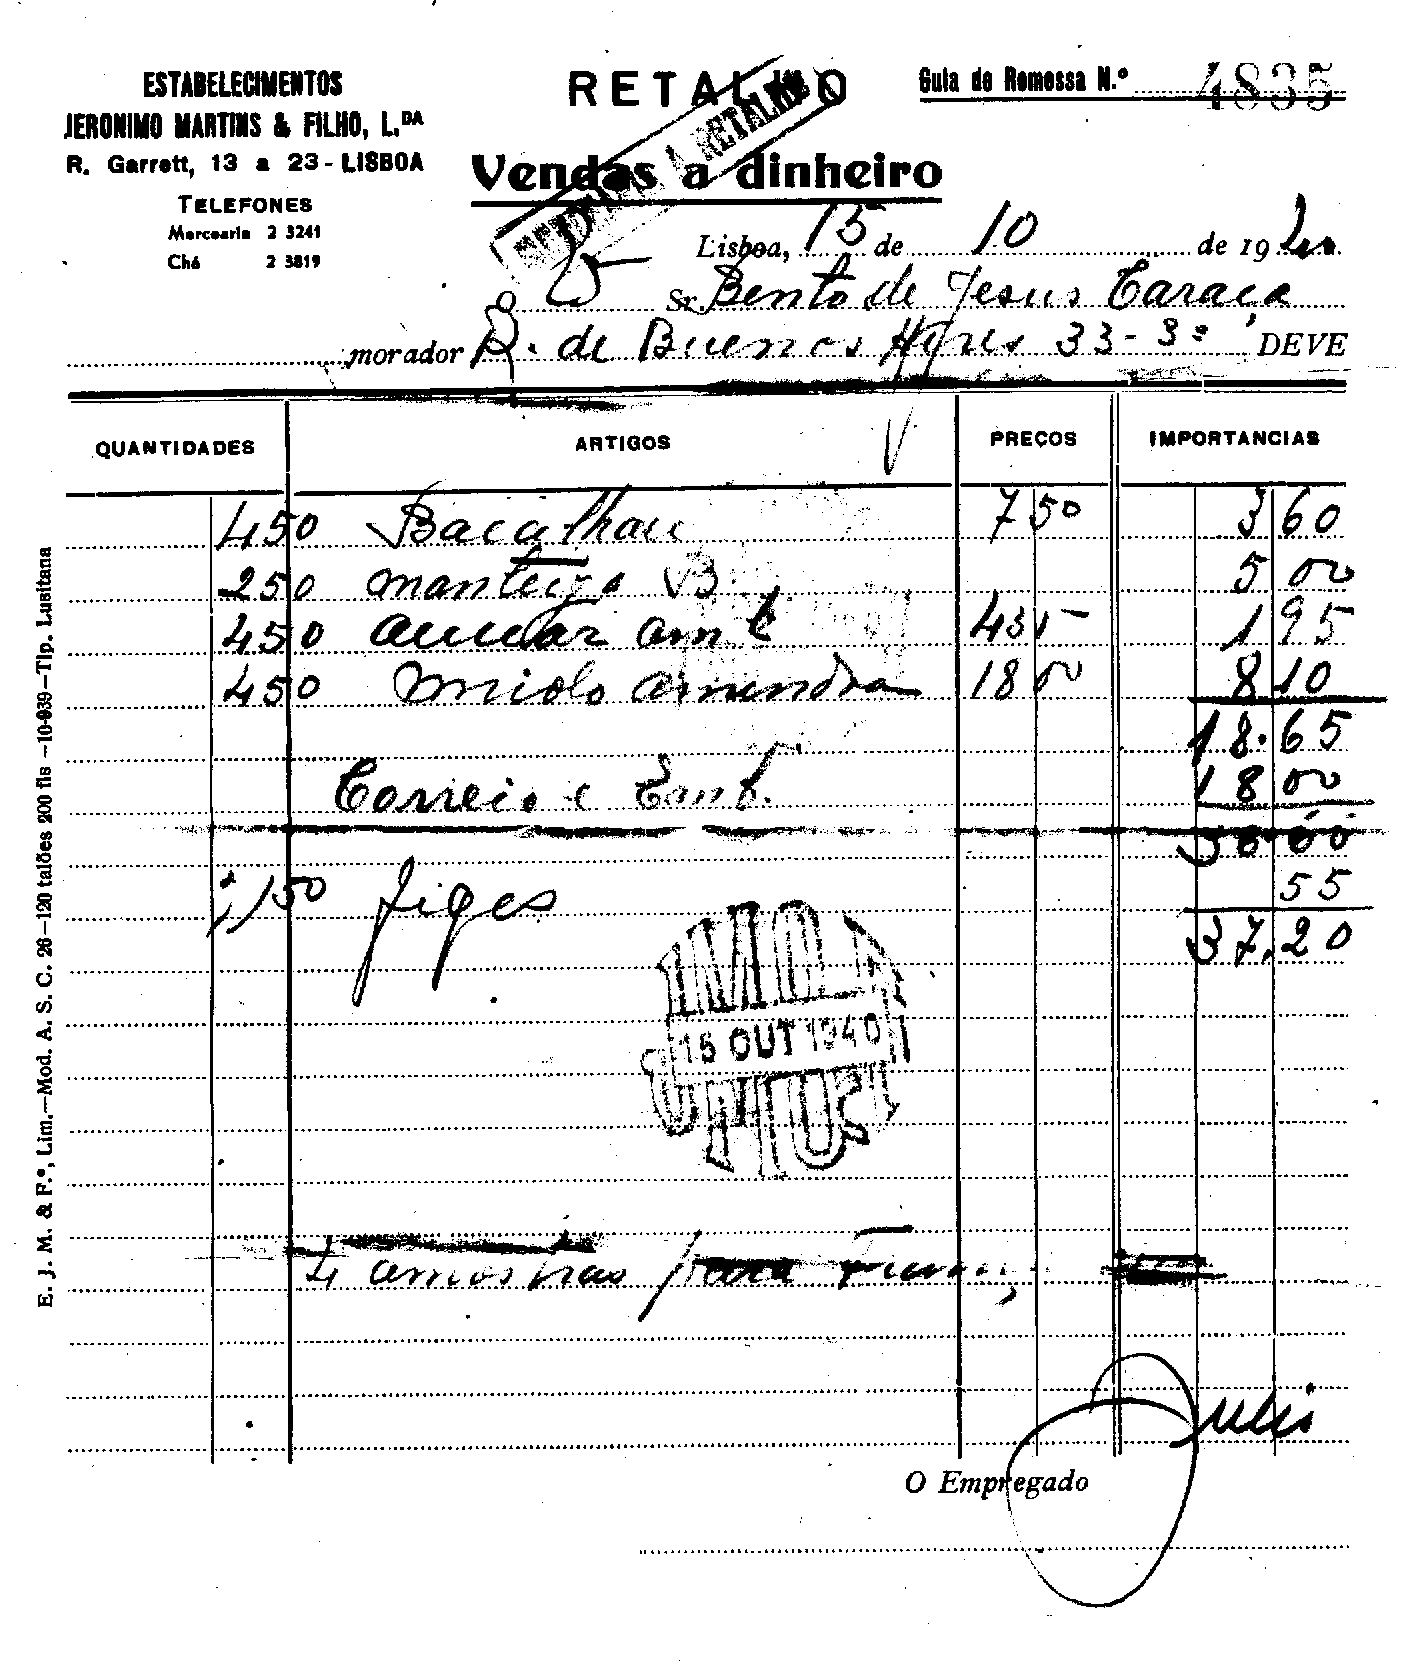 ESTABELECIMENTOS
JERONIMO MARTINS & FILHO, L.DA
R. Garrett, 13 a 23 - LISBOA
TELEFONES
Mercearia 2 3241
Chá 2 3819
RETALHO
Vendas a dinheiro
Guia de Remessa N.º 4835
A RETALHO
Lisboa, 15 de 10 de 19
Sr. Bento de Jesus Caraça
morador R. de Buenos Ayres 33-3º DEVE
QUANTIDADES ARTIGOS PREÇOS IMPORTANCIAS
450 Bacalhau 7 50 3 60
250 manteiga B 5 00
450 4 35 1 95
450 miolo amendoa 18 00 8 10
18.65
Correio e Emb. 18 00
55
37.20
15 OUT 1940
4 amostras para
Julio
O Empregado
E. J. M. & F.º, Lim.—Mod. A. S. C. 26—120 talões 200 fls —10-939—Tip. Lusitana